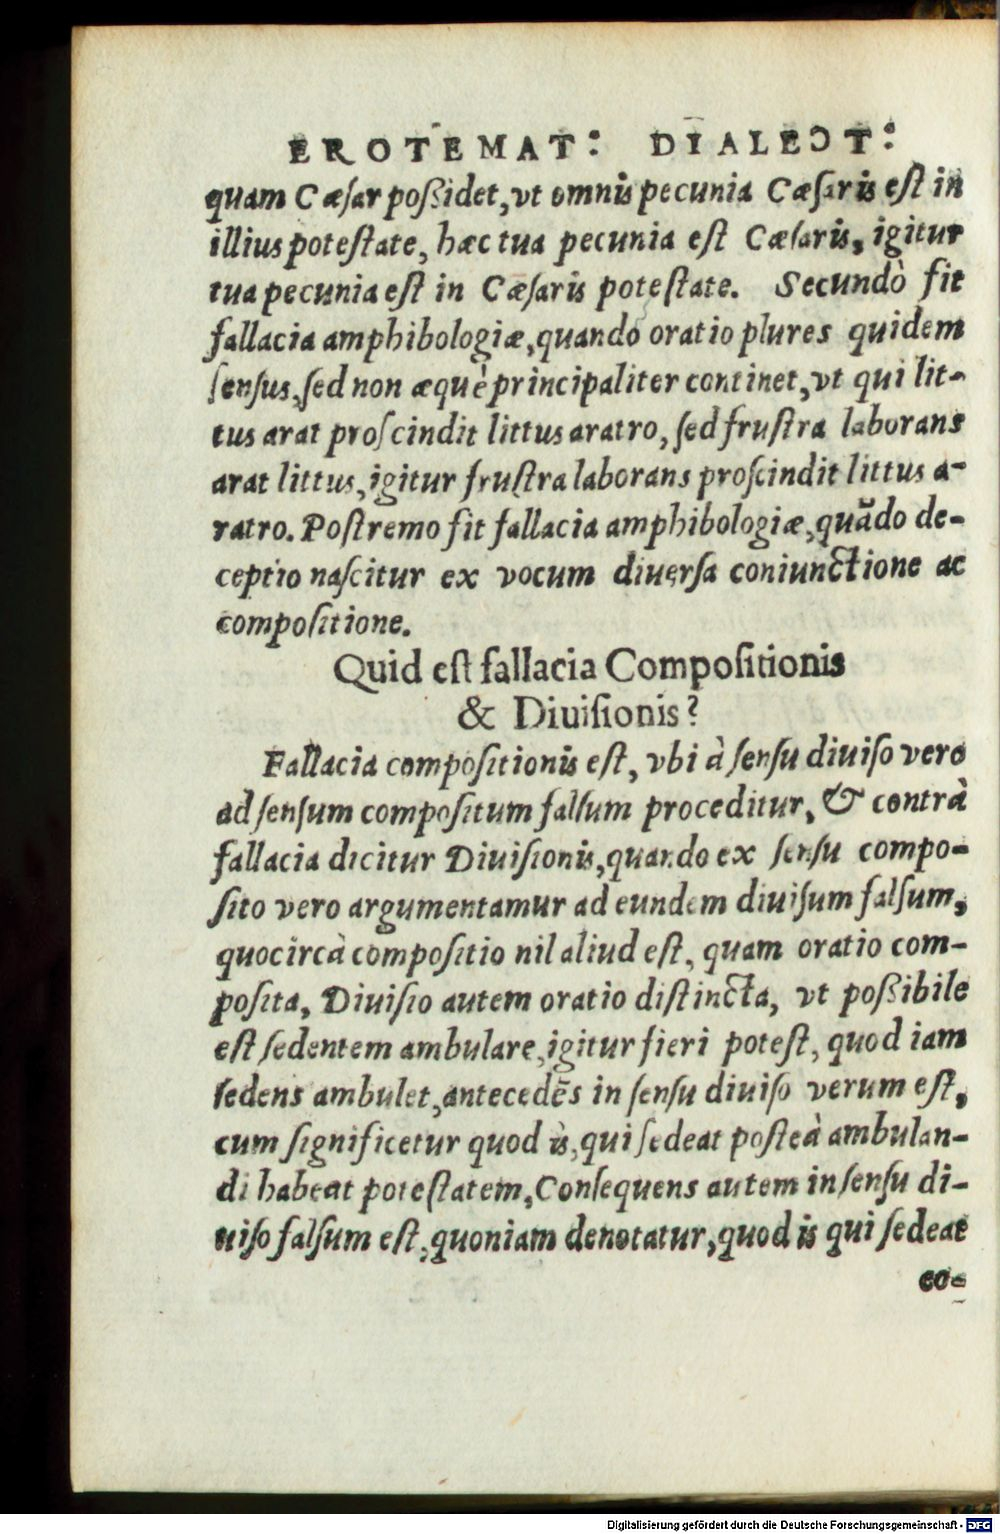 EROTEMAT: DIALECT:
quam Cæſar poßidet, vt omnis pecunia Cæſaris eſt in
illius poteſtate, hæc tua pecunia eſt Cæſaris, igitur
tua pecunia eſt in Cæſaris poteſtate. Secundò fit
fallacia amphibologiæ, quando oratio plures quidem
ſenſus, ſed non æquè principaliter continet, vt qui lit-
tus arat proſcindit littus aratro, ſed fruſtra laborans
arat littus, igitur fruſtra laborans proſcindit littus a-
ratro. Poſtremo fit fallacia amphibologiæ, quãdo de-
ceptio naſcitur ex vocum diuerſa coniunctione ac
compoſitione.
Quid eſt fallacia Compoſitionis
& Diuiſionis?
Fallacia compoſitionis eſt, vbi à ſenſu diuiſo vero
ad ſenſum compoſitum falſum proceditur, & contrà
fallacia dicitur Diuiſionis, quando ex ſenſu compo-
ſito vero argumentamur ad eundem diuiſum falſum,
quocircà compoſitio nil aliud eſt, quam oratio com-
poſita, Diuiſio autem oratio diſtincta, vt poßibile
eſt ſedentem ambulare, igitur fieri poteſt, quod iam
ſedens ambulet, antecedẽs in ſenſu diuiſo verum eſt,
cum ſignificetur quod is, qui ſedeat poſteà ambulan-
di habeat poteſtatem, Conſequens autem in ſenſu di-
uiſo falſum eſt, quoniam denotatur, quod is qui ſedeat
eo-
Digitalisierung gefördert durch die Deutsche Forschungsgemeinschaft - DFG